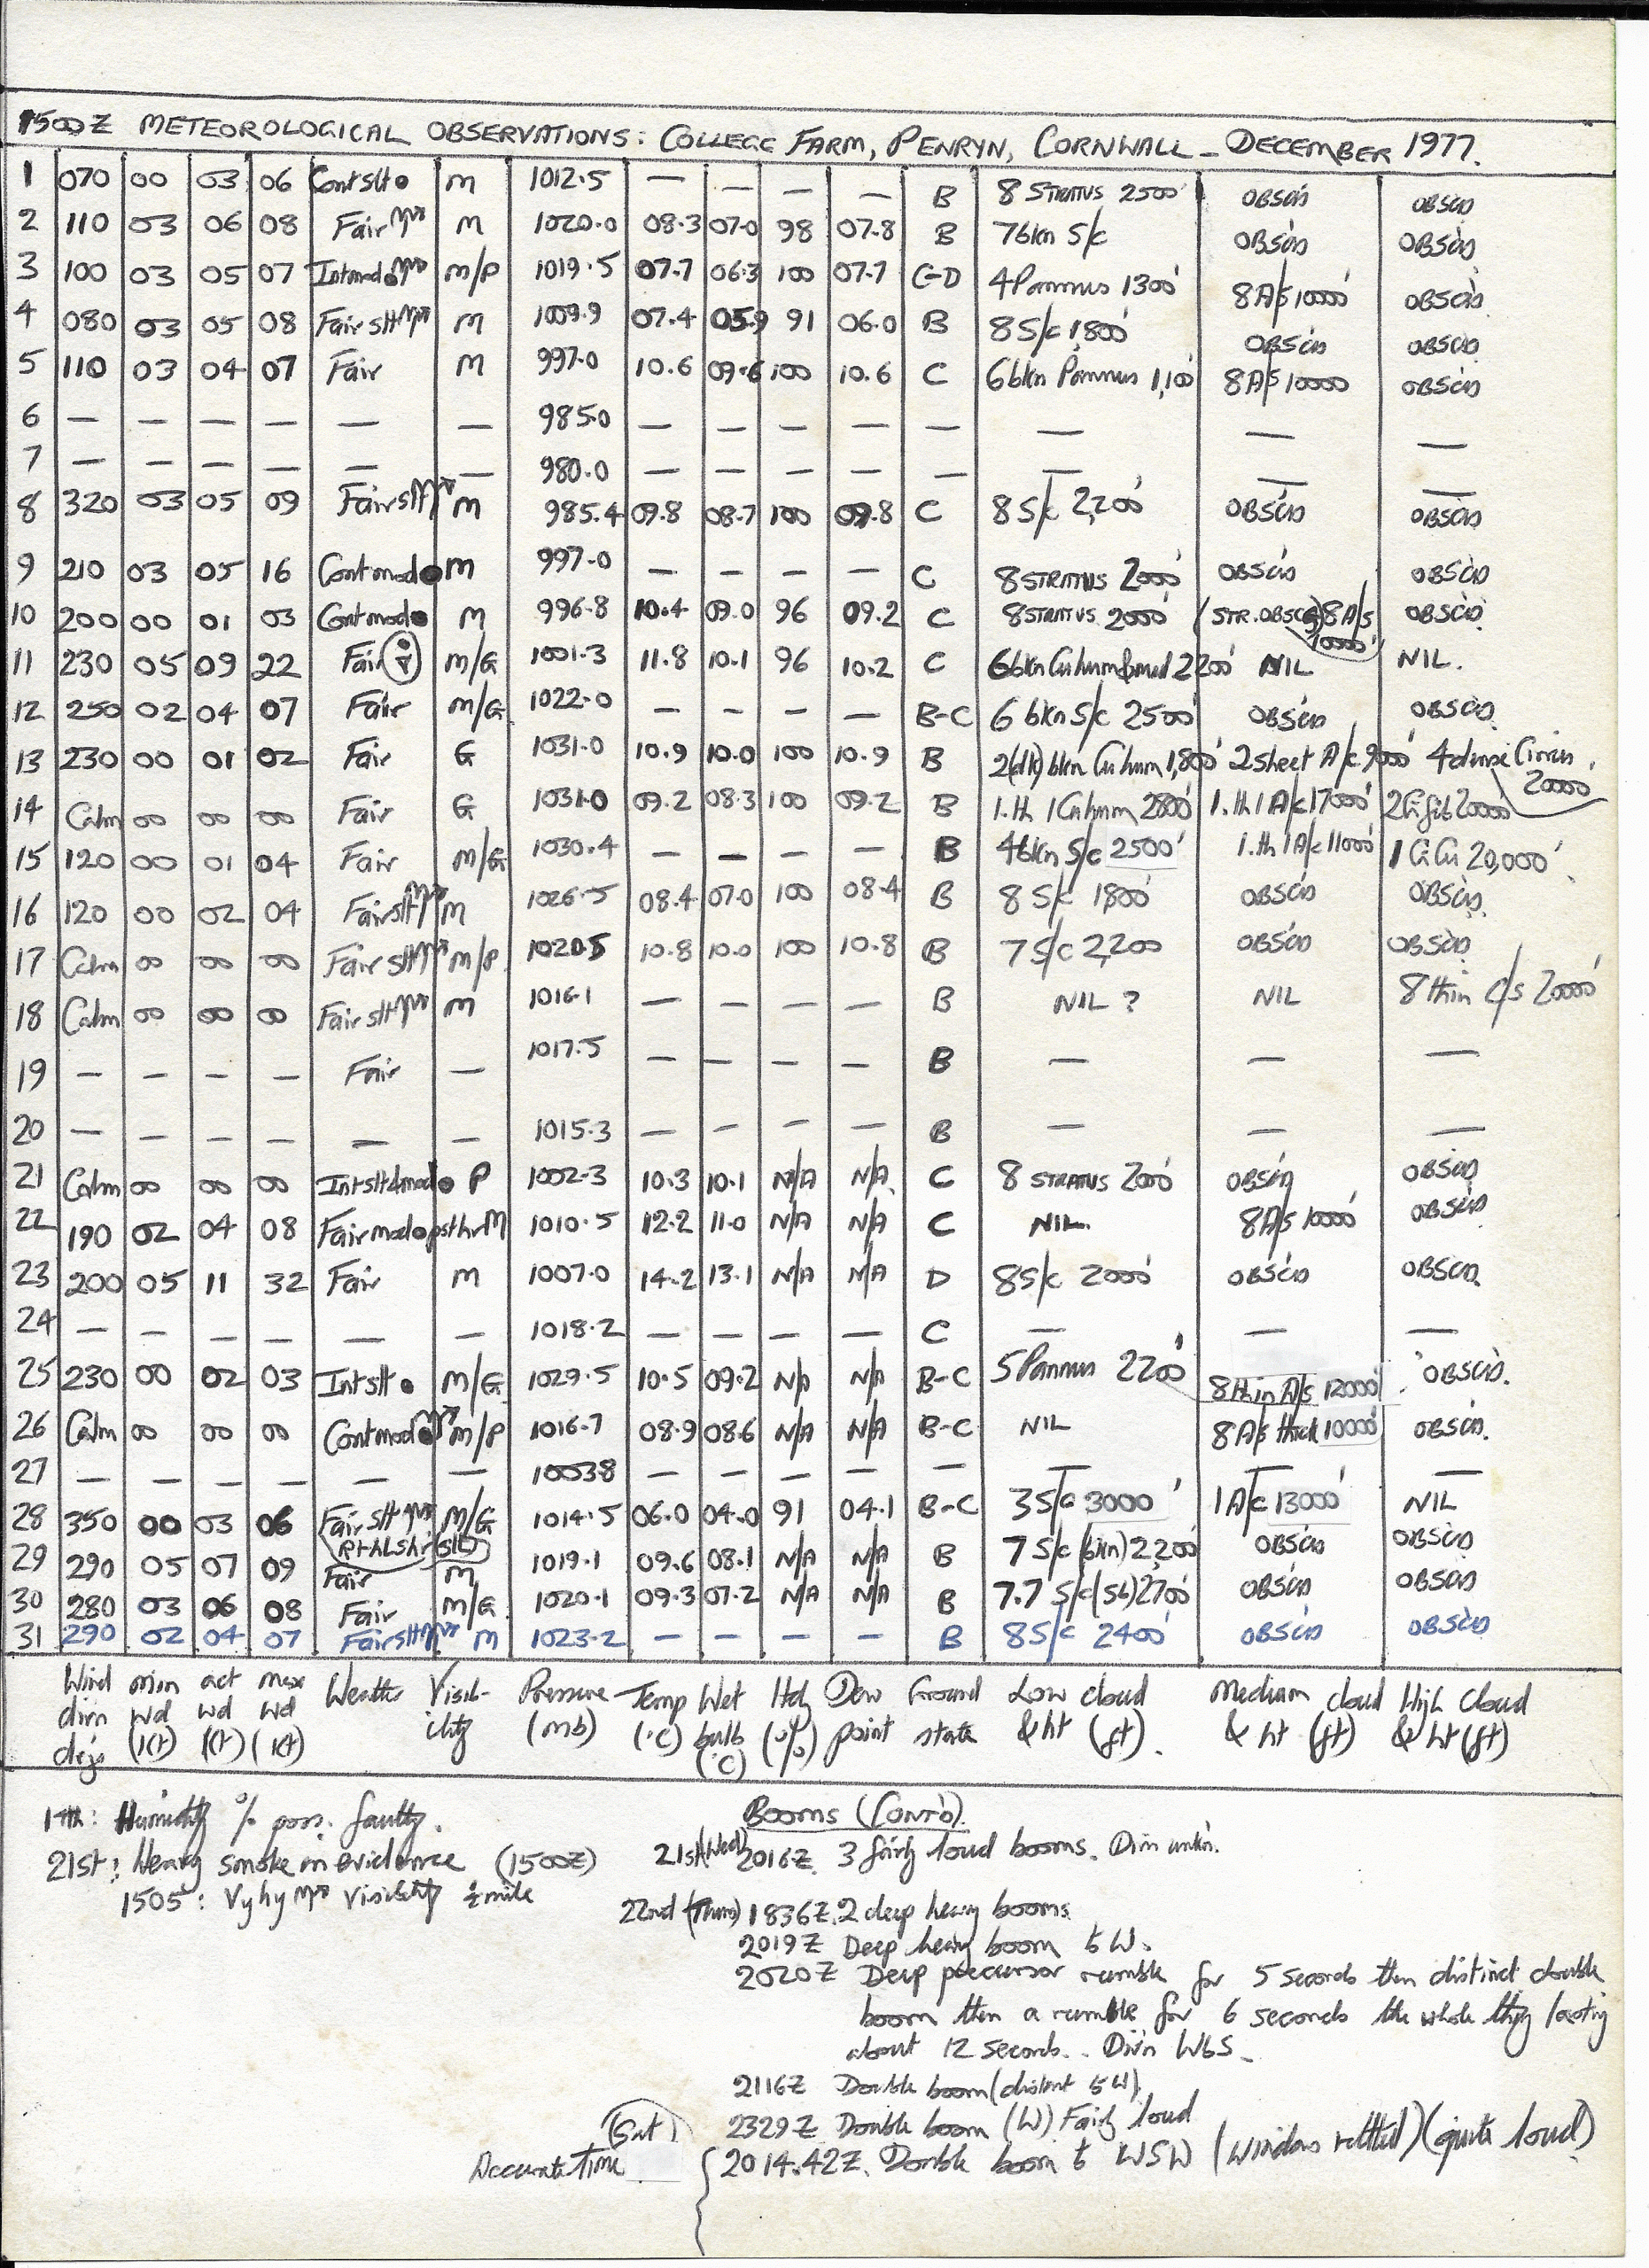 1500Z METEOROLOGICAL OBSERVATIONS: COLLEGE FARM, PENRYN, CORNWALL - DECEMBER 1977.
1 070 00 03 06 Cont slt ● M 1012.5 — — — — B 8 STRATUS 2500' OBSCD OBSCD
2 110 03 06 08 Fair M 1020.0 08.3 07.0 98 07.8 B 7bkn S/c OBSCD OBSCD
3 100 03 05 07 Int mod ● M/P 1019.5 07.7 06.3 100 07.7 C-D 4 Pannus 1300' 8 A/s 10000' OBSCD
4 080 03 05 08 Fair slt M 1009.9 07.4 05.9 91 06.0 B 8 S/c 1,800' OBSCD OBSCD
5 110 03 04 07 Fair M 997.0 10.6 09.6 100 10.6 C 6bkn Pannus 1,100' 8 A/s 10000 OBSCD
6 — — — — — — 985.0 — — — — — — — —
7 — — — — — — 980.0 — — — — — — — —
8 320 03 05 09 Fair slt M 985.4 09.8 08.7 100 09.8 C 8 S/c 2,200' OBSCD OBSCD
9 210 03 05 16 Cont mod ● M 997.0 — — — — C 8 STRATUS 2000' OBSCD OBSCD
10 200 00 01 03 Cont mod ● M 996.8 10.4 09.0 96 09.2 C 8 STRATUS 2000' (STR. OBSCG) 8 A/s 10000' OBSCD
11 230 05 09 22 Fair M/G 1001.3 11.8 10.1 96 10.2 C 6bkn Cu hum & med 2200' NIL NIL.
12 250 02 04 07 Fair M/G 1022.0 — — — — B-C 6 bkn S/c 2500' OBSCD OBSCD
13 230 00 01 02 Fair G 1031.0 10.9 10.0 100 10.9 B 2(dk) bkn Cu hum 1,800' 2 sheet A/c 9000' 4 dense Cirrus 20000
14 Calm 00 00 00 Fair G 1031.0 09.2 08.3 100 09.2 B 1.th 1 Cu hum 2800' 1.th 1 A/c 17000' 2 Ci fib 20000
15 120 00 01 04 Fair M/G 1030.4 — — — — B 4bkn S/c 2500' 1.th 1 A/c 11000' 1 Ci Cu 20,000'
16 120 00 02 04 Fair slt M 1026.5 08.4 07.0 100 08.4 B 8 S/c 1800' OBSCD OBSCD
17 Calm 00 00 00 Fair slt M/P 1020.5 10.8 10.0 100 10.8 B 7 S/c 2,200 OBSCD OBSCD
18 Calm 00 00 00 Fair slt M 1016.1 — — — — B NIL ? NIL 8 thin C/s 20000'
19 — — — — Fair — 1017.5 — — — — B — — —
20 — — — — — — 1015.3 — — — — B — — —
21 Calm 00 00 00 Int slt & mod ● P 1002.3 10.3 10.1 N/A N/A C 8 STRATUS 2000' OBSCD OBSCD
22 190 02 04 08 Fair mod ● pst hr M 1010.5 12.2 11.0 N/A N/A C NIL. 8 A/s 10000' OBSCD
23 200 05 11 32 Fair M 1007.0 14.2 13.1 N/A N/A D 8 S/c 2000' OBSCD OBSCD
24 — — — — — — 1018.2 — — — — C — — —
25 230 00 02 03 Int slt ● M/G 1029.5 10.5 09.2 N/A N/A B-C 5 Pannus 2200' 8 thin A/s 12000' OBSCD.
26 Calm 00 00 00 Cont mod ● M/P 1016.7 08.9 08.6 N/A N/A B-C NIL 8 A/s thick 10000' OBSCD.
27 — — — — — — 1003.8 — — — — — — — —
28 350 00 03 06 Fair slt M/G 1014.5 06.0 04.0 91 04.1 B-C 3 S/c 3000' 1 A/c 13000' NIL
29 290 05 07 09 Fair M 1019.1 09.6 08.1 N/A N/A B 7 S/c (bkn) 2,200' OBSCD OBSCD
30 280 03 06 08 Fair M/G 1020.1 09.3 07.2 N/A N/A B 7.7 S/c (Sb) 2700' OBSCD OBSCD
31 290 02 04 07 Fair slt M 1023.2 — — — — B 8 S/c 2400' OBSCD OBSCD
Wind dirn degs min wd (Kt) act wd (Kt) max wd (Kt) Weather Visibility Pressure (mb) Temp (°C) Wet bulb (°C) Hdy (%) Dew point Ground state Low cloud & ht (ft). Medium cloud & ht (ft) High Cloud & ht (ft)
17th: Humidity % poss. faulty.
21st: Heavy smoke in evidence (1500Z)
1505: Vy hy visibility ½ mile
BOOMS (CONT'D).
21st (Wed) 2016Z. 3 fairly loud booms. Dirn unkn.
22nd (Thurs) 1836Z. 2 deep heavy booms.
2019Z Deep heavy boom to W.
2020Z Deep precursor rumble for 5 seconds then distinct double
boom then a rumble for 6 seconds the whole thing lasting
about 12 seconds. Dir'n WbS.
2116Z Double boom (distant to W).
2329Z Double boom (W) Fairly loud
(Sat) Accurate Time 2014.42Z. Double boom to WSW (windows rattled) (quite loud)